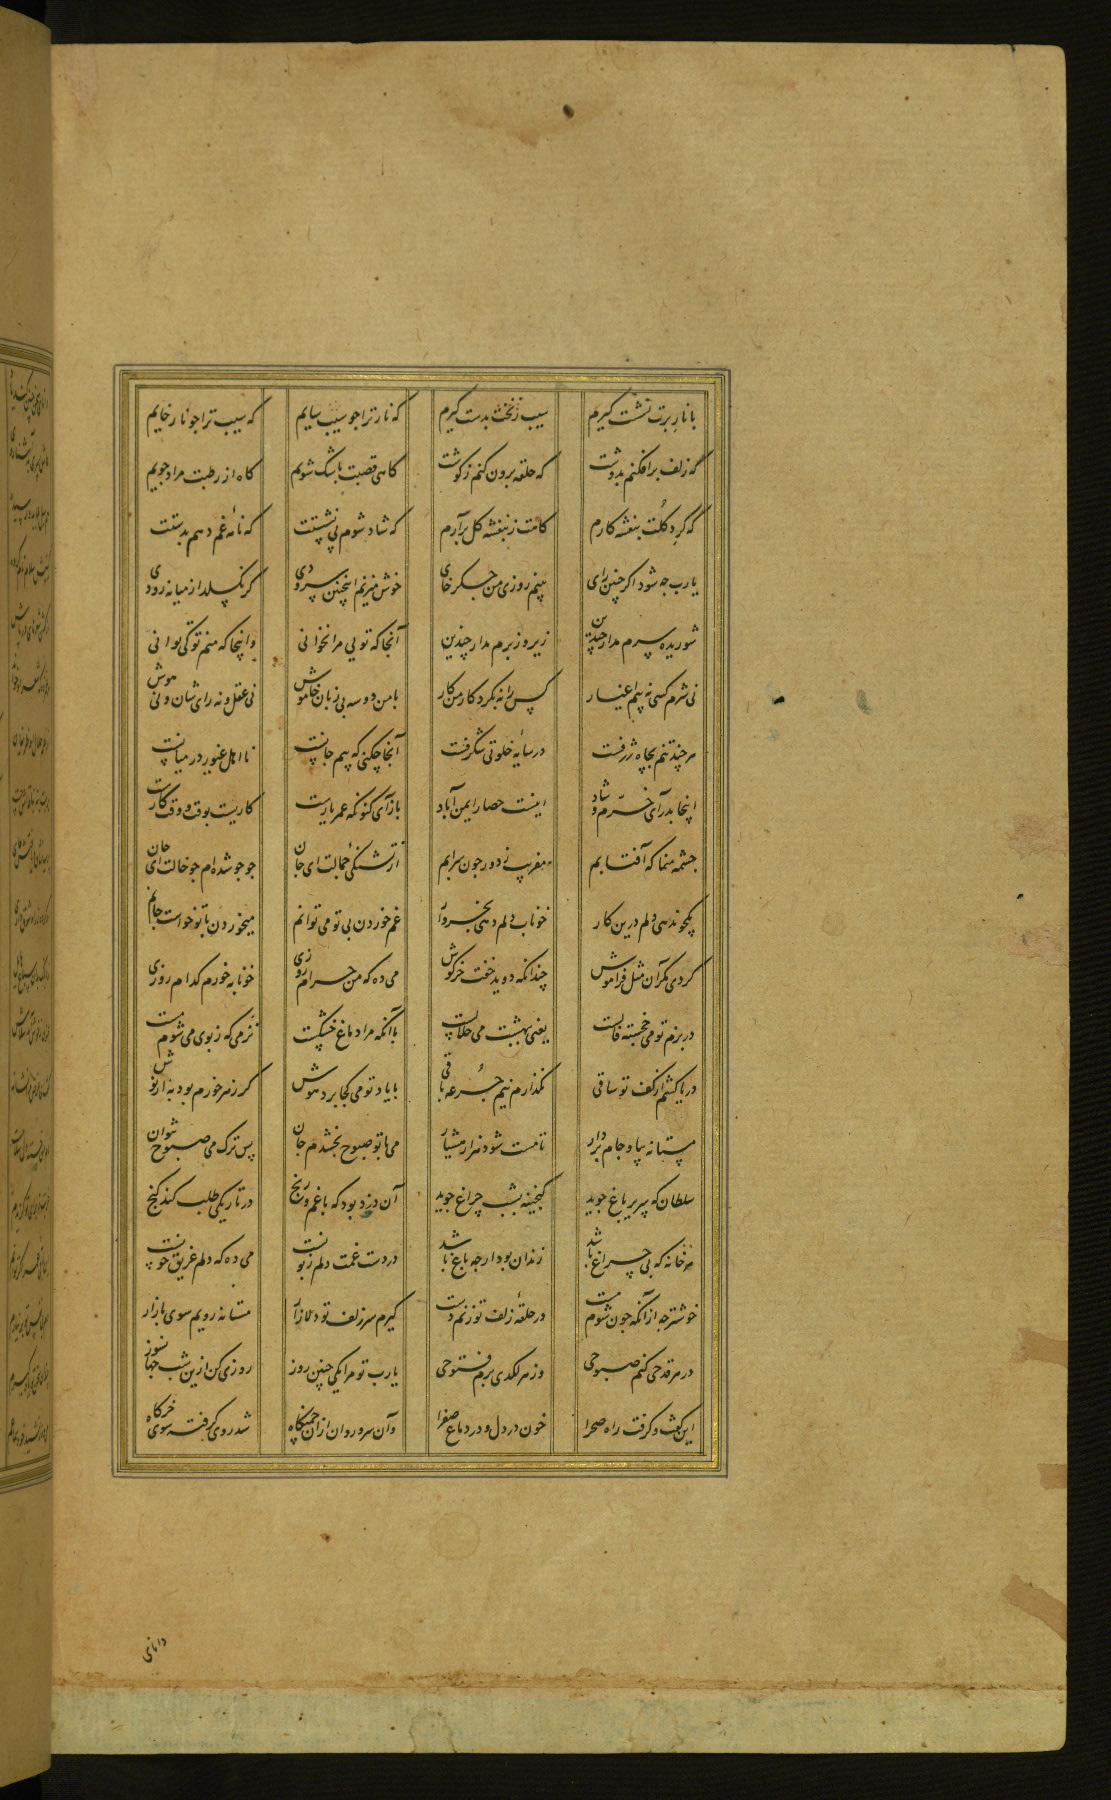 با نار برت نشست گیرم سیب زنخت بدست گیرم که نار ترا جو سیب سایم که سیب ترا جو نار خایم
که زلف برافکنم بدوشت که حلقه برون کنم ز گوشت کاهی قصبت باشک شویم کاه از رطبت مراد جویم
که کرد کلت بنفشه کارم کاهت ز بنفشه کل برآرم که شاد شوم پی نشستت که نامه غم دهم بدستت
یارب جه شود اکر چنین رای بینم روزی من جکر خای خوش میزنم اینچنین سرودی کر نکسلد از میانه رودی
شوریده سرم مدار چندین زیر و زبرم مدار چندین آنجا که تویی مرا نخوانی وانیجا که منم تو کی توانی
نی شرم کسی نه بیم اغیار کس را نه بکرد کار من کار با من دو سه بی زبان خاموش نی عقل و نه رای شان و نی هوش
هر چند تنم بچاه ژرفست در سایه خلوتی شکرفست آنجا چکنی که بیم جانست نااهل غیور در میانست
اینجا بدر آی خرّم و شاد اینست حصار ایمن آباد بازآی کنون که عمر یارست کاریت بوقت و وقت کارست
جشمه منما که آفتابم مفریب ز دور جون سرابم از تشنکی جمالت ای جان جو جو شده‌ام جو خالت ای جان
یکجو ندهی دلم درین کار خوناب دلم دهی بخروار غم خوردن بی تو می توانم می خوردن با تو خواست جانم
کردی مکر آن مثل فراموش چندانکه دوید خفت خرکوش می ده که من حرام روزی خونابه خورم کدام روزی
در بزم تو می خجسته فالست یعنی بهشت می حلالست با آنکه مرا دماغ خشکست نرمی که ز بوی می شوم مست
دریا کشم از کف تو ساقی نکذارم نیم جرعه باقی با یاد تو می کجا برد هوش کر زهر خورم بود به از نوش
مستانه بیا و جام بردار تا مست شود هزار هشیار می با تو صبوح بخشدم جان پس ترک می صبوح نتوان
سلطان که سریر باغ جوید کنجینه بشب چراغ جوید آن دزد بود که با غم و رنج در تاریکی طلب کند کنج
هر خانه که بی چراغ باشد زندان بود ار جه باغ باشد در دست غمت دلم زبونست می ده که دلم غریق خونست
خوشتر جه از آنکه جون شوم مست در حلقه زلف تو زنم دست کیرم سر زلف تو دلازار مستانه رویم سوی بازار
در هر قدحی کنم صبوحی وز هر لکدی برم فتوحی یارب تو مرا یکی چنین روز روزی کن ازین شب جهانسوز
این کفت و کرفت راه صحرا خون در دل و در دماغ صفرا وآن سرو روان از ان چمنکاه شد روی کرفته سوی خرکاه
دانای